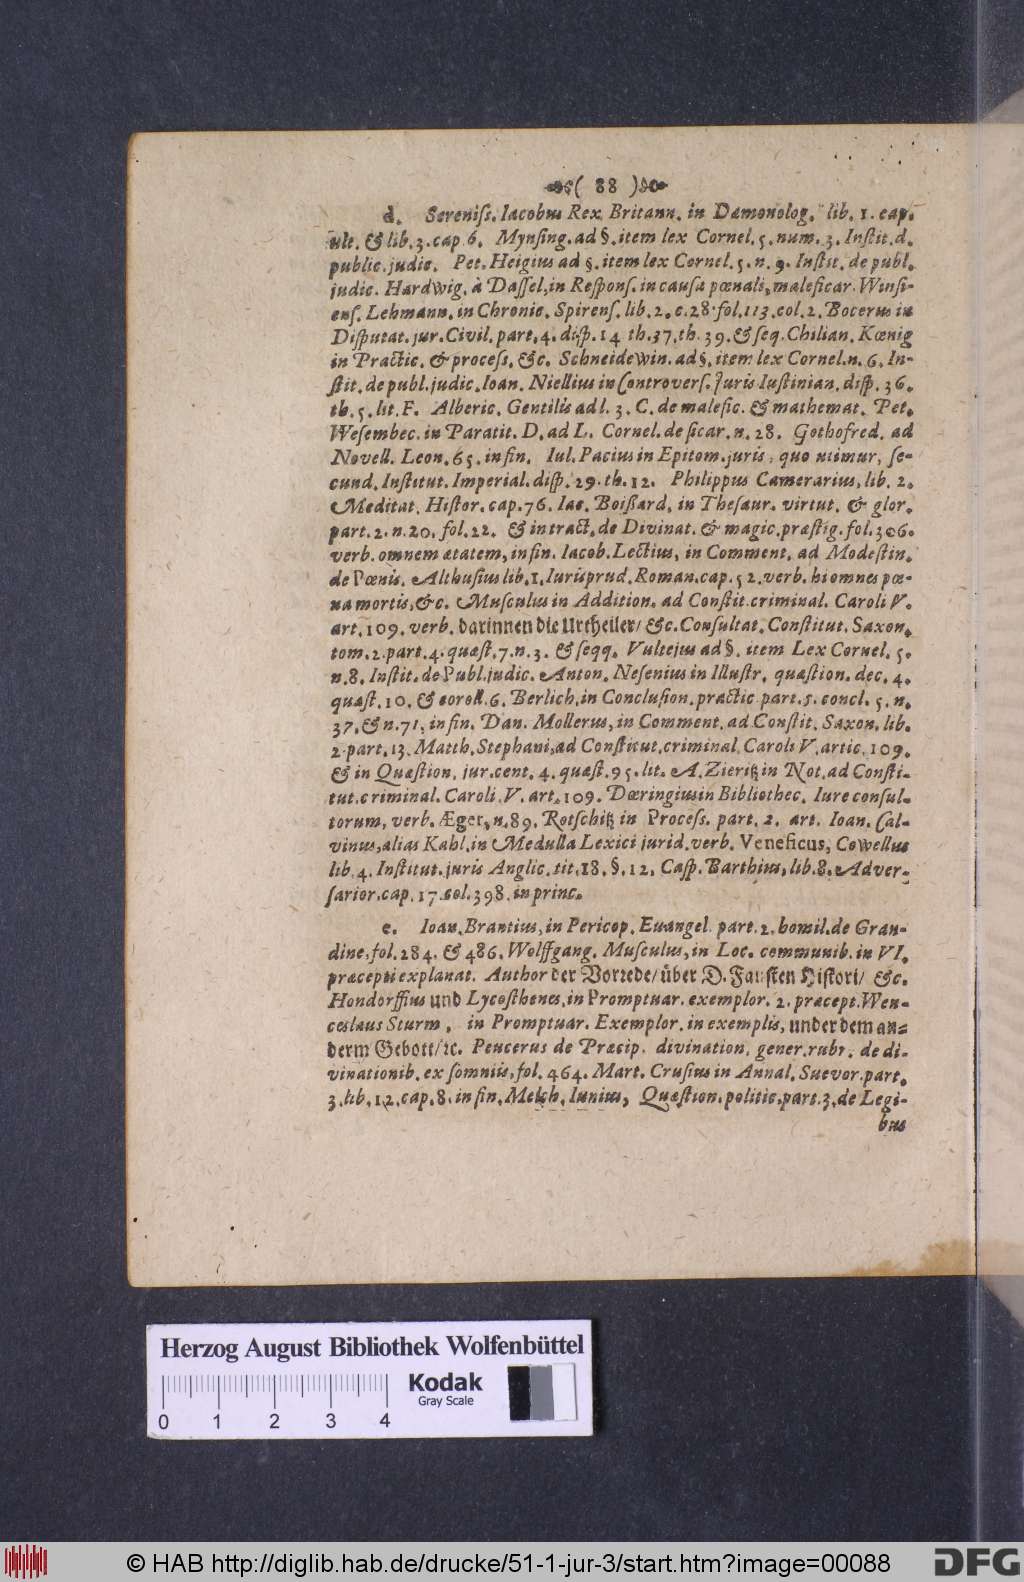 ( 88 )
d. Sereniſs. Iacobus Rex Britann. in Dæmonolog. lib. 1. cap.
ult. & lib. 3. cap 6. Mynſing. ad §. item lex Cornel. 5. num. 3. Inſtit. d.
public. judic. Pet. Heigius ad §. item lex Cornel. 5. n. 9. Inſtit. de publ.
judic. Hardwig. à Daſſel, in Reſponſ. in cauſa pœnali, maleficar. Winſi-
enſ. Lehmann. in Chronic. Spirenſ. lib. 2. c. 28. fol. 113. col. 2. Bocerus in
Diſputat. jur. Civil. part. 4. diſp. 14 th. 37. th. 39. & ſeq. Chilian. Kœnig
in Practic. & proceſs. &c. Schneidewin. ad §. item lex Cornel. n. 6. In-
ſtit. de publ. judic. Ioan. Niellius in Controverſ. Juris Iuſtinian. diſp. 36.
th. 5. lit. F. Alberic. Gentilis ad l. 3. C. de malefic. & mathemat. Pet.
Weſembec. in Paratit. D. ad L. Cornel. de ſicar. n. 28. Gothofred. ad
Novell. Leon. 65. in fin. Iul. Pacius in Epitom. juris, quo utimur, ſe-
cund. Inſtitut. Imperial. diſp. 29. th. 12. Philippus Camerarius, lib. 2.
Meditat. Hiſtor. cap. 76. Iac. Boißard. in Theſaur. virtut. & glor.
part. 2. n. 20. fol. 22. & in tract. de Divinat. & magic. præſtig. fol. 306.
verb. omnem ætatem, in fin. Iacob. Lectius, in Comment. ad Modeſtin.
de Pœnis. Althuſius lib. 1. Iurisprud. Roman. cap. 52. verb. hi omnes pœ-
na mortis, &c. Muſculus in Addition. ad Conſtit. criminal. Caroli V.
art. 109. verb. darinnen die Urtheiler/ &c. Conſultat. Conſtitut. Saxon.
tom. 2. part. 4. quæſt. 7. n. 3. & ſeqq. Vultejus ad §. item Lex Cornel. 5.
n. 8. Inſtit. de Publ. judic. Anton. Neſenius in Illuſtr. quæſtion. dec. 4.
quæſt. 10. & coroll. 6. Berlich. in Concluſion. practic part. 5. concl. 5. n.
37. & n. 71. in fin. Dan. Mollerus, in Comment. ad Conſtit. Saxon. lib.
2. part. 13. Matth. Stephani, ad Conſtitut. criminal. Caroli V. artic. 109.
& in Quæſtion. jur. cent. 4. quæſt. 95. lit. A. Zieritz in Not. ad Conſti-
tut. criminal. Caroli. V. art. 109. Dœringius in Bibliothec. Iure conſul-
torum, verb. Æger, n. 89. Rotſchitz in Proceſs. part. 2. art. Ioan. Cal-
vinus, alias Kahl. in Medulla Lexici jurid. verb. Veneficus, Cowellus
lib. 4. Inſtitut. juris Anglic. tit. 18. §. 12. Caſp. Barthius, lib. 8. Adver-
ſarior. cap. 17. col. 398. in princ.
e. Ioan. Brantius, in Pericop. Euangel. part. 2. homil. de Gran-
dine, fol. 284. & 486. Wolffgang. Muſculus, in Loc. communib. in VI.
præcepti explanat. Author der Vorrede/ über D. Fauſten Hiſtori/ &c.
Hondorffius und Lycoſthenes, in Promptuar. exemplor. 2. præcept. Wen-
ceslaus Sturm, in Promptuar. Exemplor. in exemplis, under dem an-
derm Gebott/ ꝛc. Peucerus de Præcip. divination. gener. rubr. de di-
vinationib. ex ſomniis, fol. 464. Mart. Cruſius in Annal. Suevor. part.
3. lib. 12. cap. 8. in fin. Melch. Iunius, Quæſtion. politic. part. 3. de Legi-
bus
Herzog August Bibliothek Wolfenbüttel
0 1 2 3 4
Kodak
Gray Scale
© HAB http://diglib.hab.de/drucke/51-1-jur-3/start.htm?image=00088
DFG